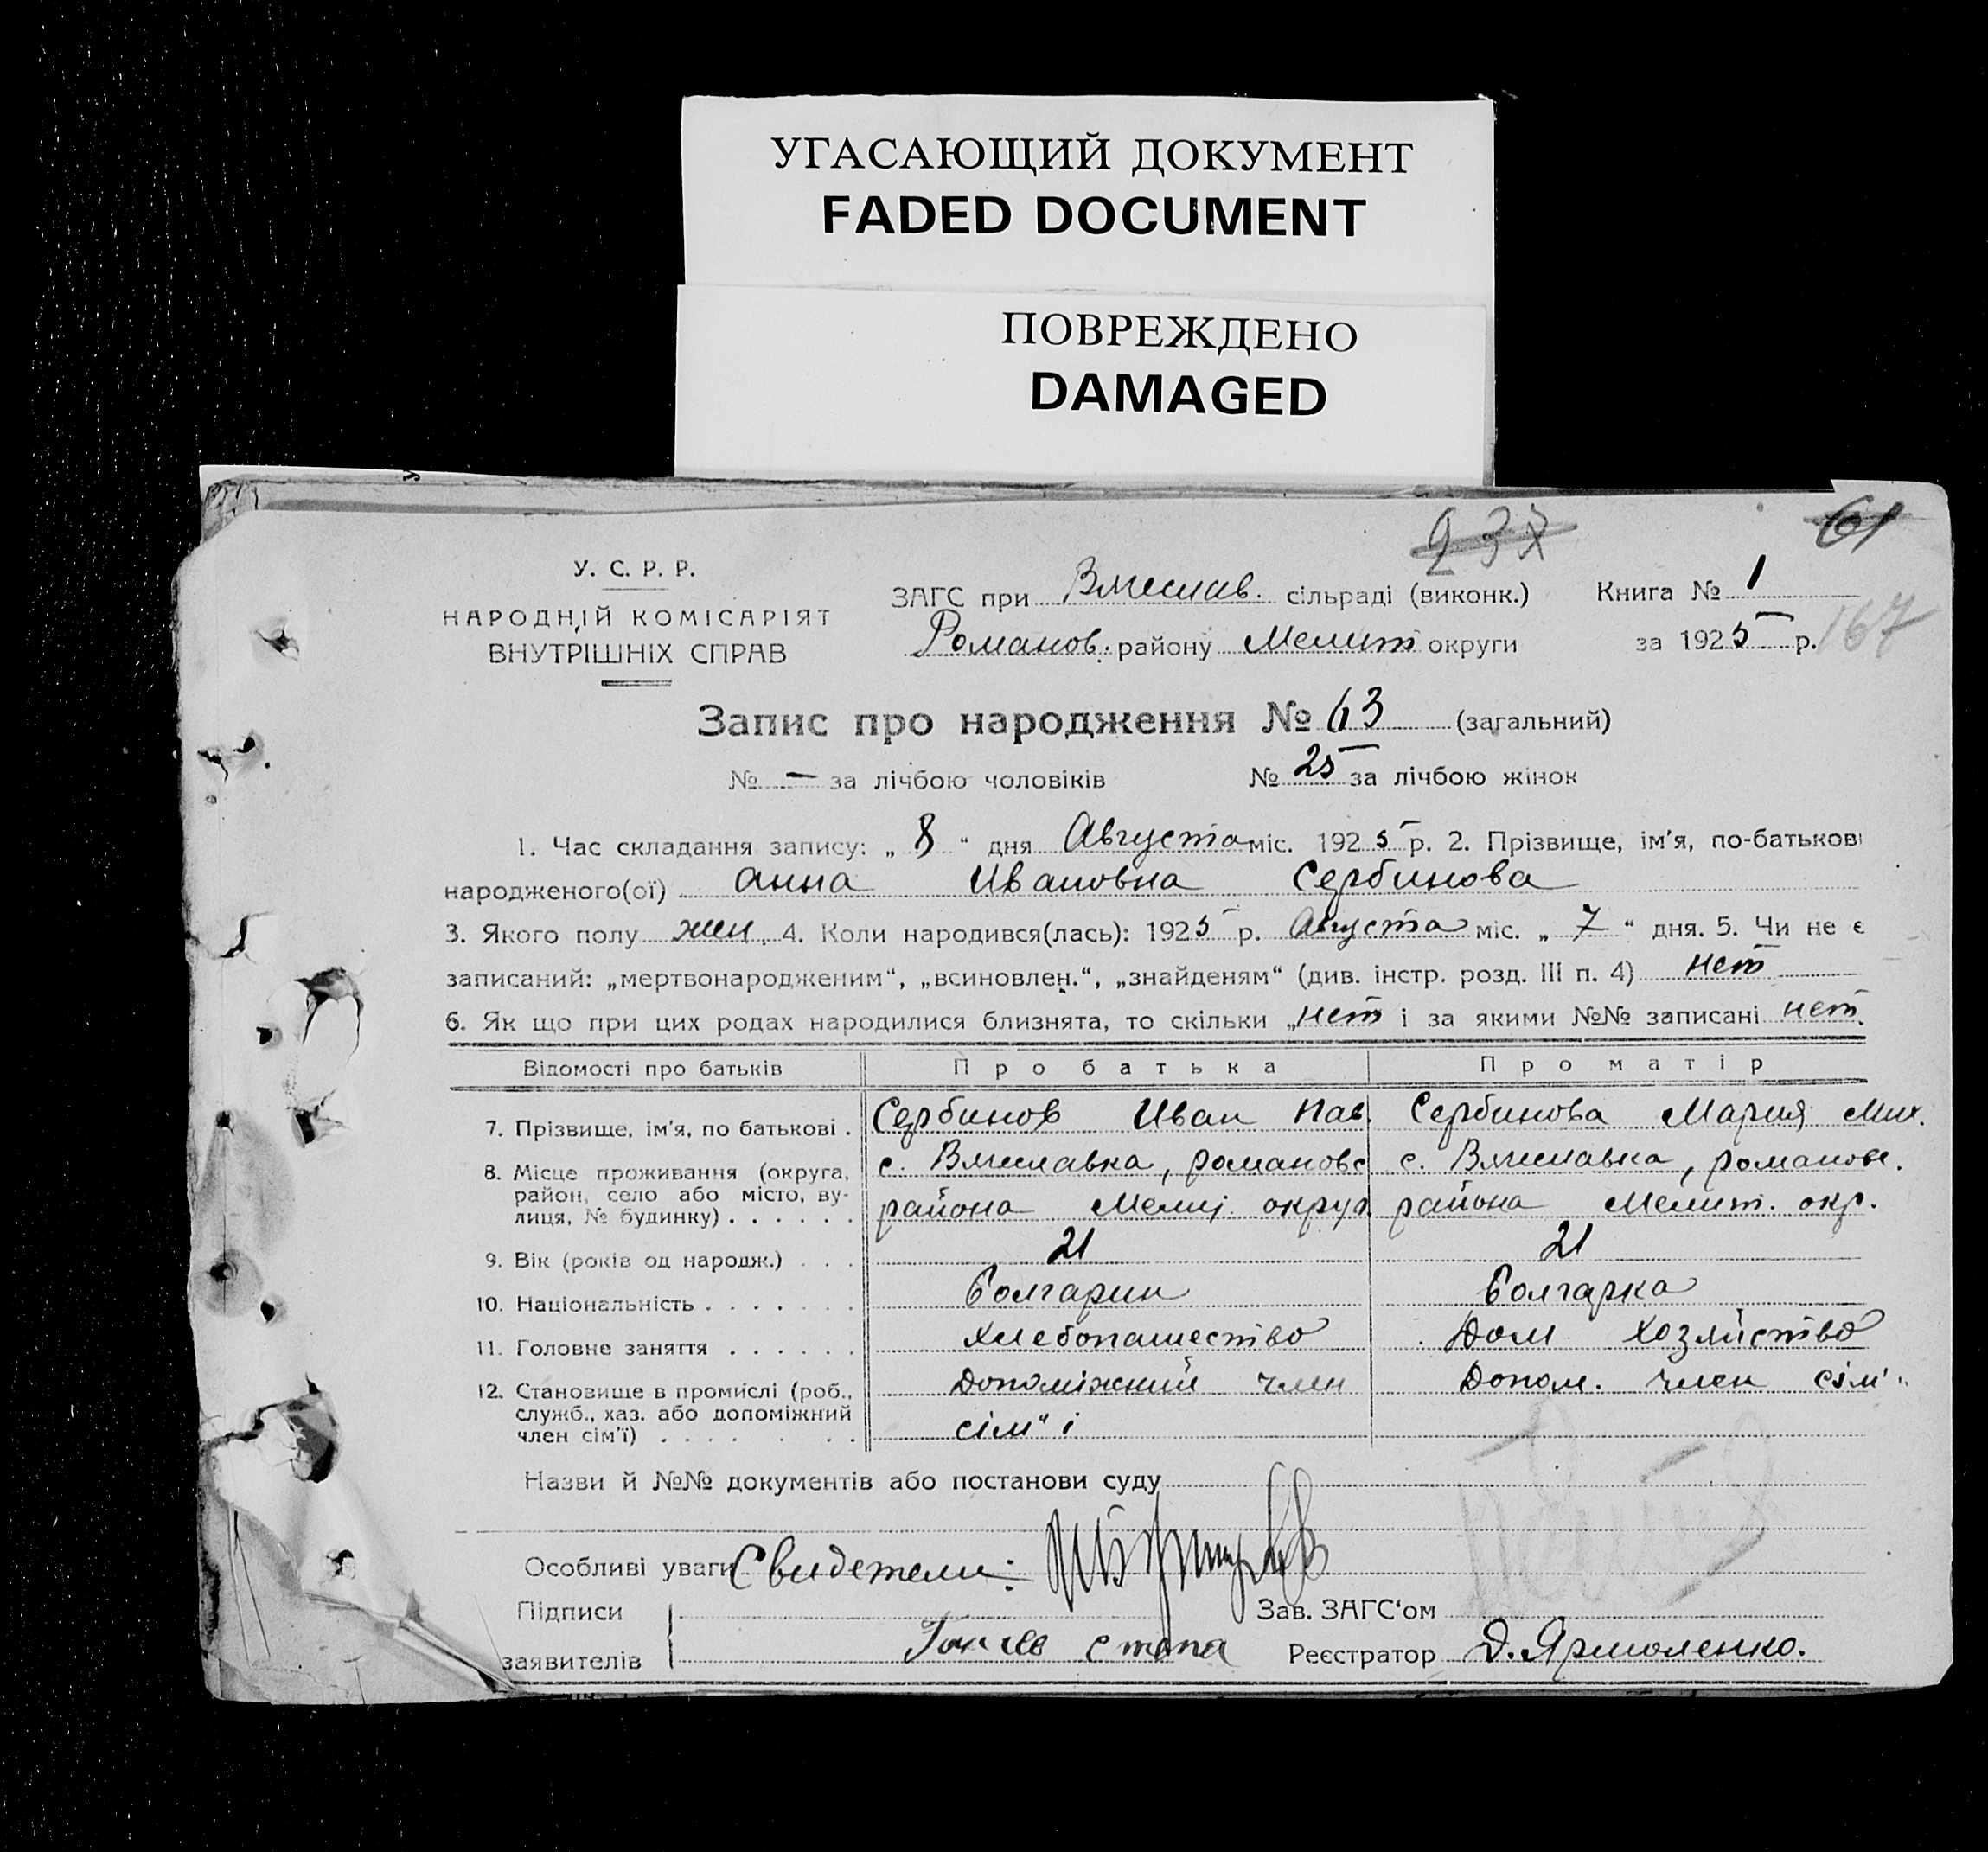 УГАСАЮЩИЙ ДОКУМЕНТ
FADED DOCUMENT
ПОВРЕЖДЕНО
DAMAGED
237
61
У. С. Р. Р.
НАРОДНІЙ КОМІСАРІЯТ
ВНУТРІШНІХ СПРАВ
ЗАГС при Вячеслав. сільраді (виконк.) Книга № 1
Романов. району Мелит округи за 1925 р. 167
Запис про народження № 63 (загальний)
№ — за лічбою чоловіків № 25 за лічбою жінок
1. Час складання запису: „ 8 “ дня Августа міс. 1925 р. 2. Прізвище, ім’я, по-батькові
народженого(ої) Анна Ивановна Сербинова
3. Якого полу жен. 4. Коли народився(лась): 1925 р. Августа міс. „ 7 “ дня. 5. Чи не є
записаний: „мертвонародженим“, „всиновлен.“, „знайденям“ (див. інстр. розд. III п. 4) нет
6. Як що при цих родах народилися близнята, то скільки „ нет і за якими №№ записані нет.
Відомості про батьків Про батька Про матір
7. Прізвище, ім’я, по батькові . Сербинов Иван Пав. Сербинова Мария Мих.
8. Місце проживання (округа, район, село або місто, вулиця, № будинку) . . . . . . с. Вячеславка, романовс района Мелит округ с. Вячеславка, романовс. района Мелит. окр.
9. Вік (років од народж.) . . . 21 21
10. Національність . . . . . . . Болгарин Болгарка
11. Головне заняття . . . . . . Хлебопашество Дом Хозяйство
12. Становище в промислі (роб., служб., хаз. або допоміжний член сім’ї) . . . . . . . Допоміжний член сім"і Допом. член сім'
Назви й №№ документів або постанови суду
Особливі уваги Свидетели:
Підписи Зав. ЗАГС‘ом
заявителів Реєстратор Д. Ярмоленко.